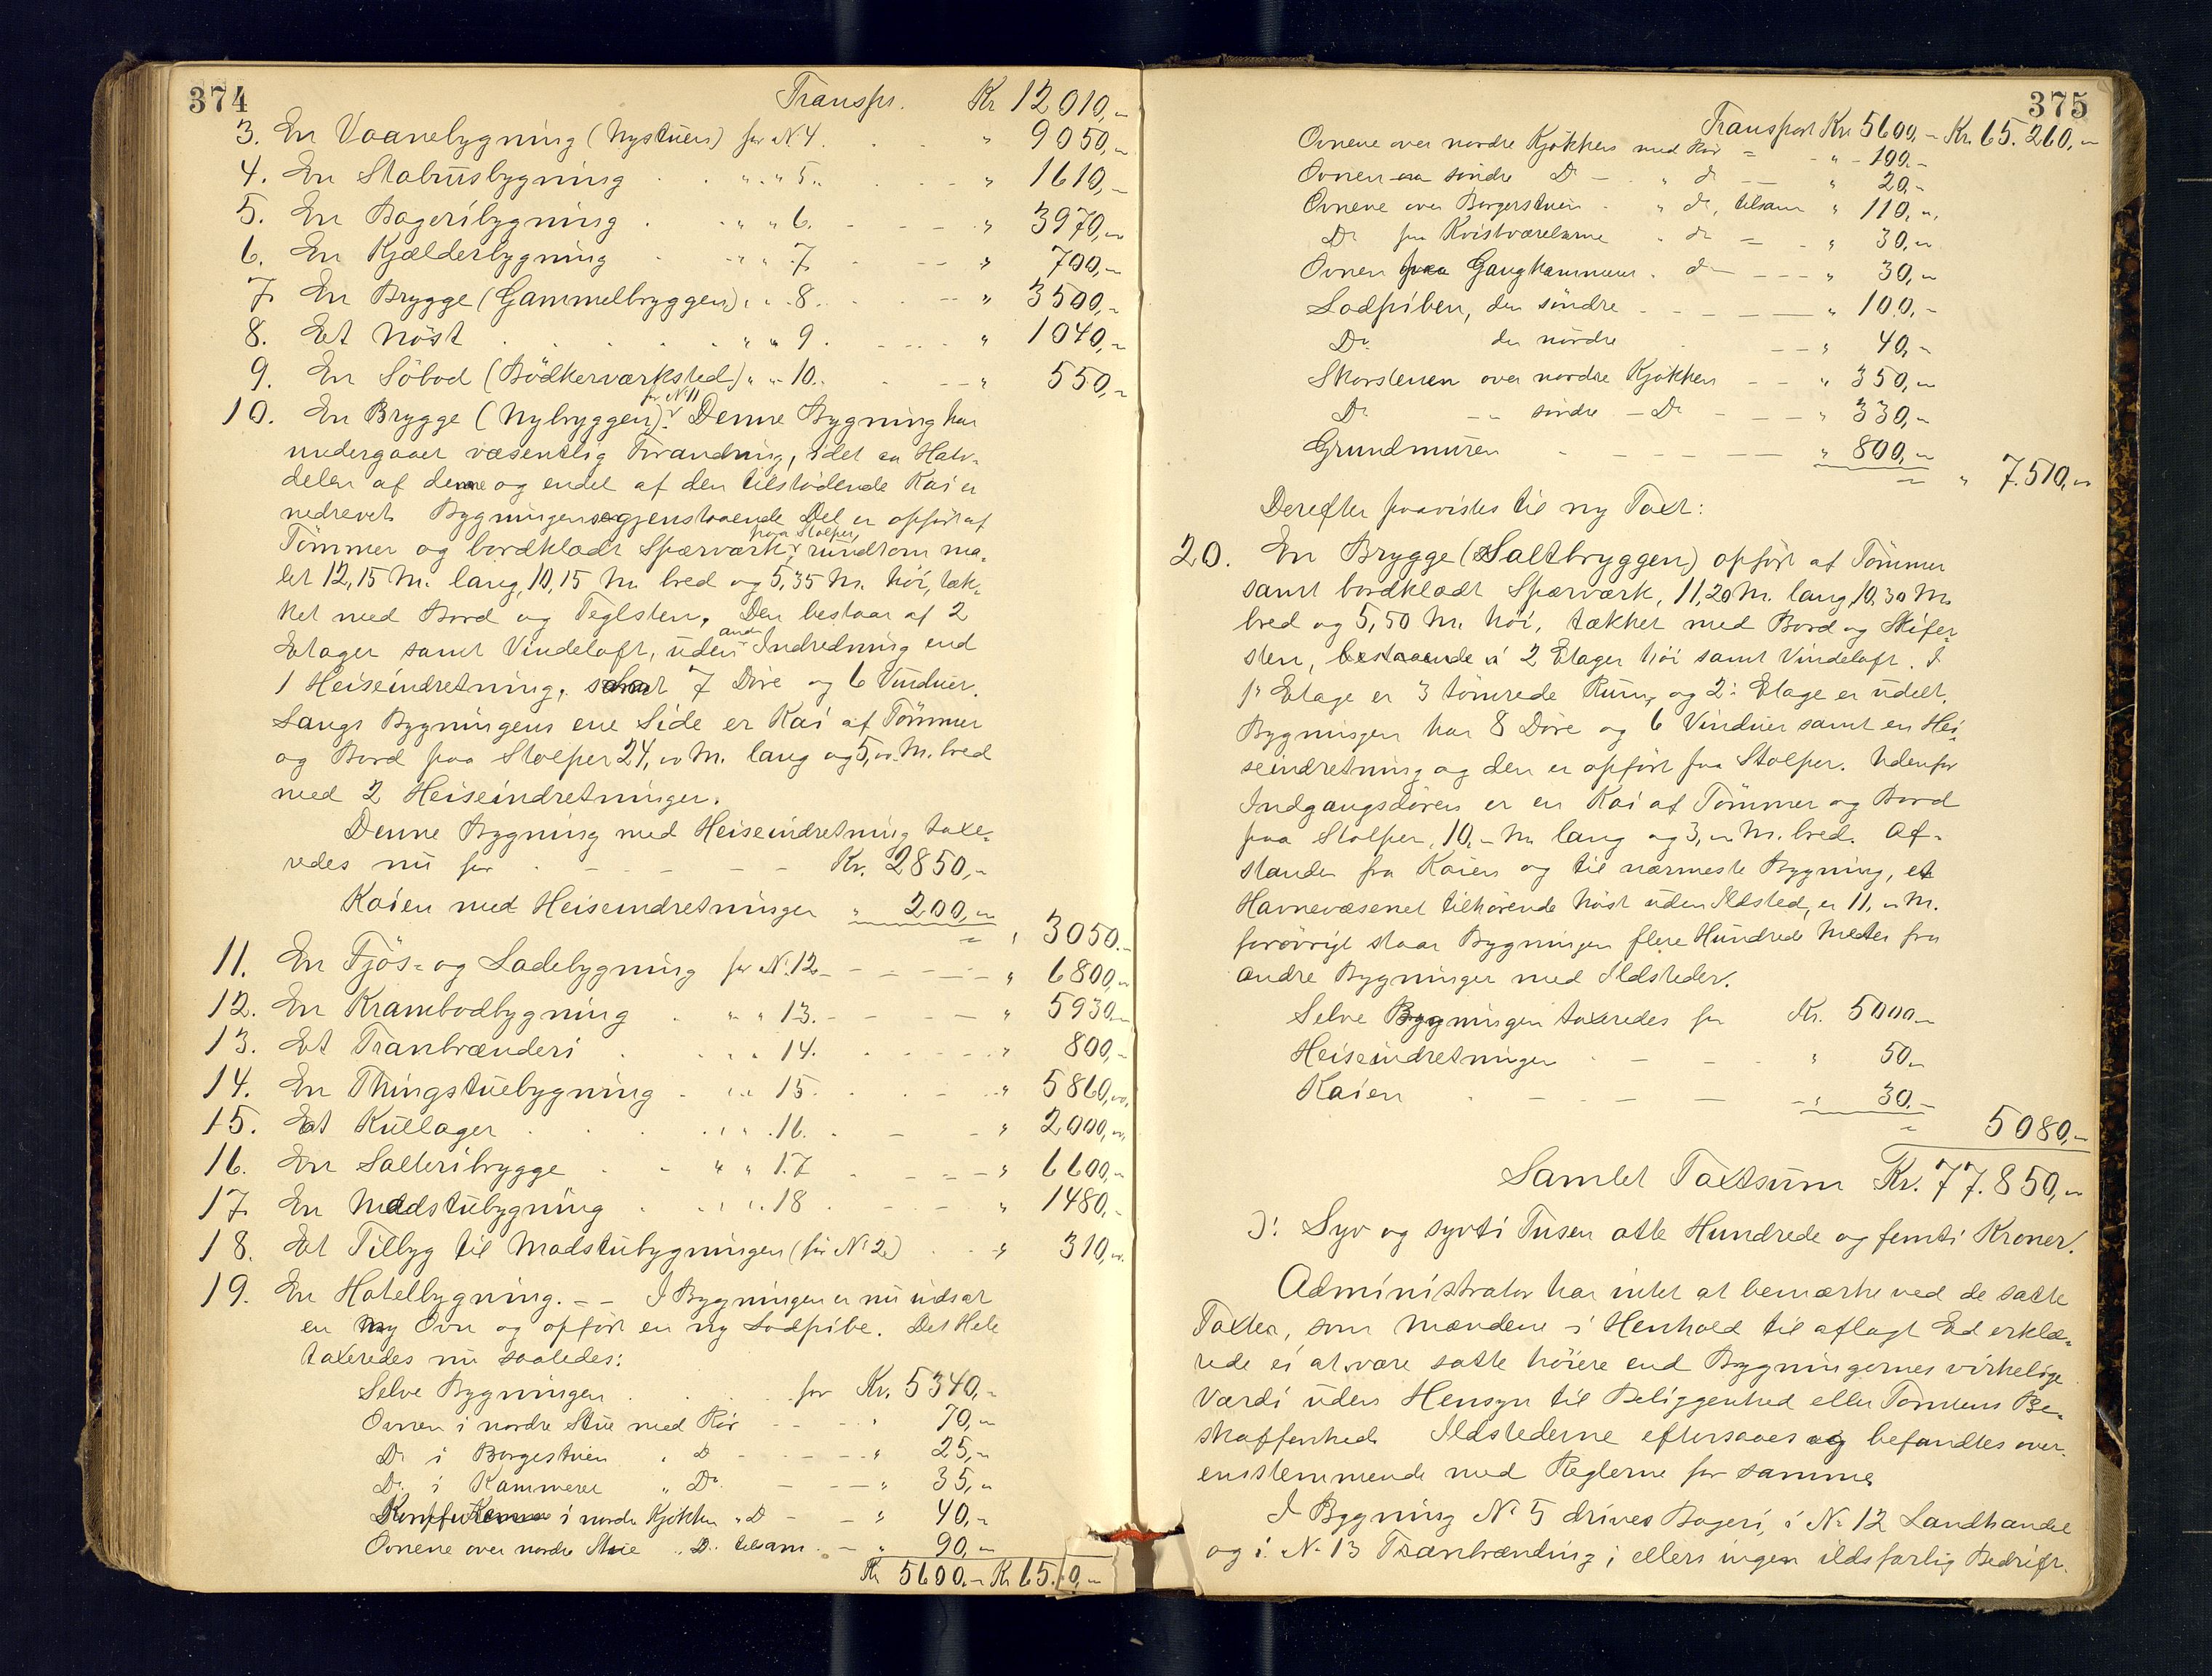 374
Transpr. Kr 12 010,-
3. En Vaanebygning (Nystuen) før N. 4. . . " 9050,-
4. En Stabursbygning . . " " 5. . . - - " 1610,-
5. En Bageribygning . . " " 6. - - - " 3970,-
6. En Kjælderbygning . . " " 7. . - - " 700,-
7. En Brygge (Gammelbryggen) " " 8. . . - - " 3500,-
8. Et Nöst . . . . . " " 9. . - - - " 1040,-
9. En Söbod (Bödkerværksted) " " 10. . - - " 550,-
før N. 11
10. En Brygge (Nybryggen). Denne Bygning har
undergaaet væsentlig Forandring, idet en Halv-
delen af denne og endel af den tilstödende Kai er
nedrevet. Bygningens gjenstaaende Del er opfört af
paa Stolper,
Tömmer og bordklædt Spærværk, rundtom ma-
let 12,15 M. lang, 10,15 M. bred og 5,35 M. höi, tæk-
ket med Bord og Teglsten. Den bestaar af 2
anden
Etager samt Vindeloft, uden Indredning end
1 Heiseindretning, samt 7 Döre og 6 Vinduer.
Langs Bygningens ene Side er Kai af Tömmer
og Bord paa Stolper 24,00 M. lang og 5,00 M. bred
med 2 Heiseindretninger.
Denne Bygning med Heiseindretning taxe-
redes nu for . - - - - - Kr. 2850,-
Kaien med Heiseindretninger " 200,-
= " 3050.-
11. En Fjös- og Ladebygning før N. 12 - - - - - " 6800,-
12. En Krambodbygning . " " 13. - - - - " 5930,-
13. Et Tranbrænderi . . " " 14. . - - - - " 800,-
14. En Thingstuebygning . " " 15. . . - - " 5860,-
15. Et Kullager . . . . " " 16. . - - " 2000,-
16. En Salteribrygge . - " " 17 . - - - " 6600,-
17. En Madstubygning . . " " 18 . - - - " 1480,-
18. Et Tilbyg til Madstubygningen (før No 2) . . " 310,-
19. En Hotelbygning. - - I Bygningen er nu indsat
en ny Ovn og opfört en ny Lodpibe. Det Hele
taxeredes nu saaledes:
Selve Bygningen . . . . for Kr. 5340,-
Ovnen i nordre Stue med Rör - - - " 70,-
Do i Borgestuen " Do - - - - " 25,-
Do i Kammeret " Do - - - " 35,-
i nordre Kjökken " Do - - " 40,-
Ovnene over nordre Stue " Do tilsam. - " 90,-
Kr 5600.- Kr 65. 0,-
375
Transport Kr 5600,- Kr. 65.260,-
Ovnene over nordre Kjökken med Rör - - " 100.-
Ovnen söndre Do - . " do - - " 20,-
Ovnene over Borgerstuen . " do, tilsam " 110,-
Do paa Kvistværelserne . do - - " 30,-
Ovnen paa Gangkammeret . do - - - " 30,-
Lodpiben, den söndre - - - - - " 100,-
Do den nördre . - - " 40,-
Skorstenen over nordre Kjökken - - " 350,-
Do - - söndre - Do - - - " 330,-
Grundmuren - - - - - " 800,-
= " 7.510,-
Derefter paavistes til ny Taxt:
20. En Brygge (Saltbryggen) opfört af Tömmer
samt bordklædt Spærværk, 11,20 M. lang, 10,30 M.
bred og 5,50 M. höi, tækket med Bord og Skifer-
sten, bestaaende i 2 Etager höi samt Vindeloft. I
1. Etage er 3 tömrede Rum, og 2. Etage er udelt.
Bygningen har 8 Döre og 6 Vinduer samt en Hei-
seindretning og den er opfört paa Stolper. Udenfor
Indgangsdören er en Kai af Tömmer og Bord
paa Stolper, 10,- M. lang og 3,- M. bred. Af-
standen fra Kaien og til nærmeste Bygning, et
Havnevæsenet tilhörende Nöst uden Ildsted, er 11,- M.
foröverigt staar Bygningen flere Hundrede Meter fra
andre Bygninger med Ildsteder.
Selve Bygningen taxeredes for Kr. 5000,-
Heiseindretningen . - - - " 50,-
Kaien . - - - - - " 30.-
= 5080,-
Samlet Taxtsum Kr. 77.850,-
ɔ: Syv og sytti Tusen otte Hundrede og femti Kroner.
Administrator har intet at bemærke ved de satte
Taxter, som Mændene i Henhold til aflagt Ed erklæ-
rede ei at være satte höiere end Bygningernes virkelige
Værdi uden Hensyn til Beliggenhed eller Tomtens Be-
skaffenhed. Ildstederne eftersaaes og befandtes over-
ensstemmende med Reglerne for samme.
I Bygning No 5 drives Bageri, i No 12 Landhandel
og i No 13 Tranbrænding; ellers ingen ildsfarlig Bedrift.